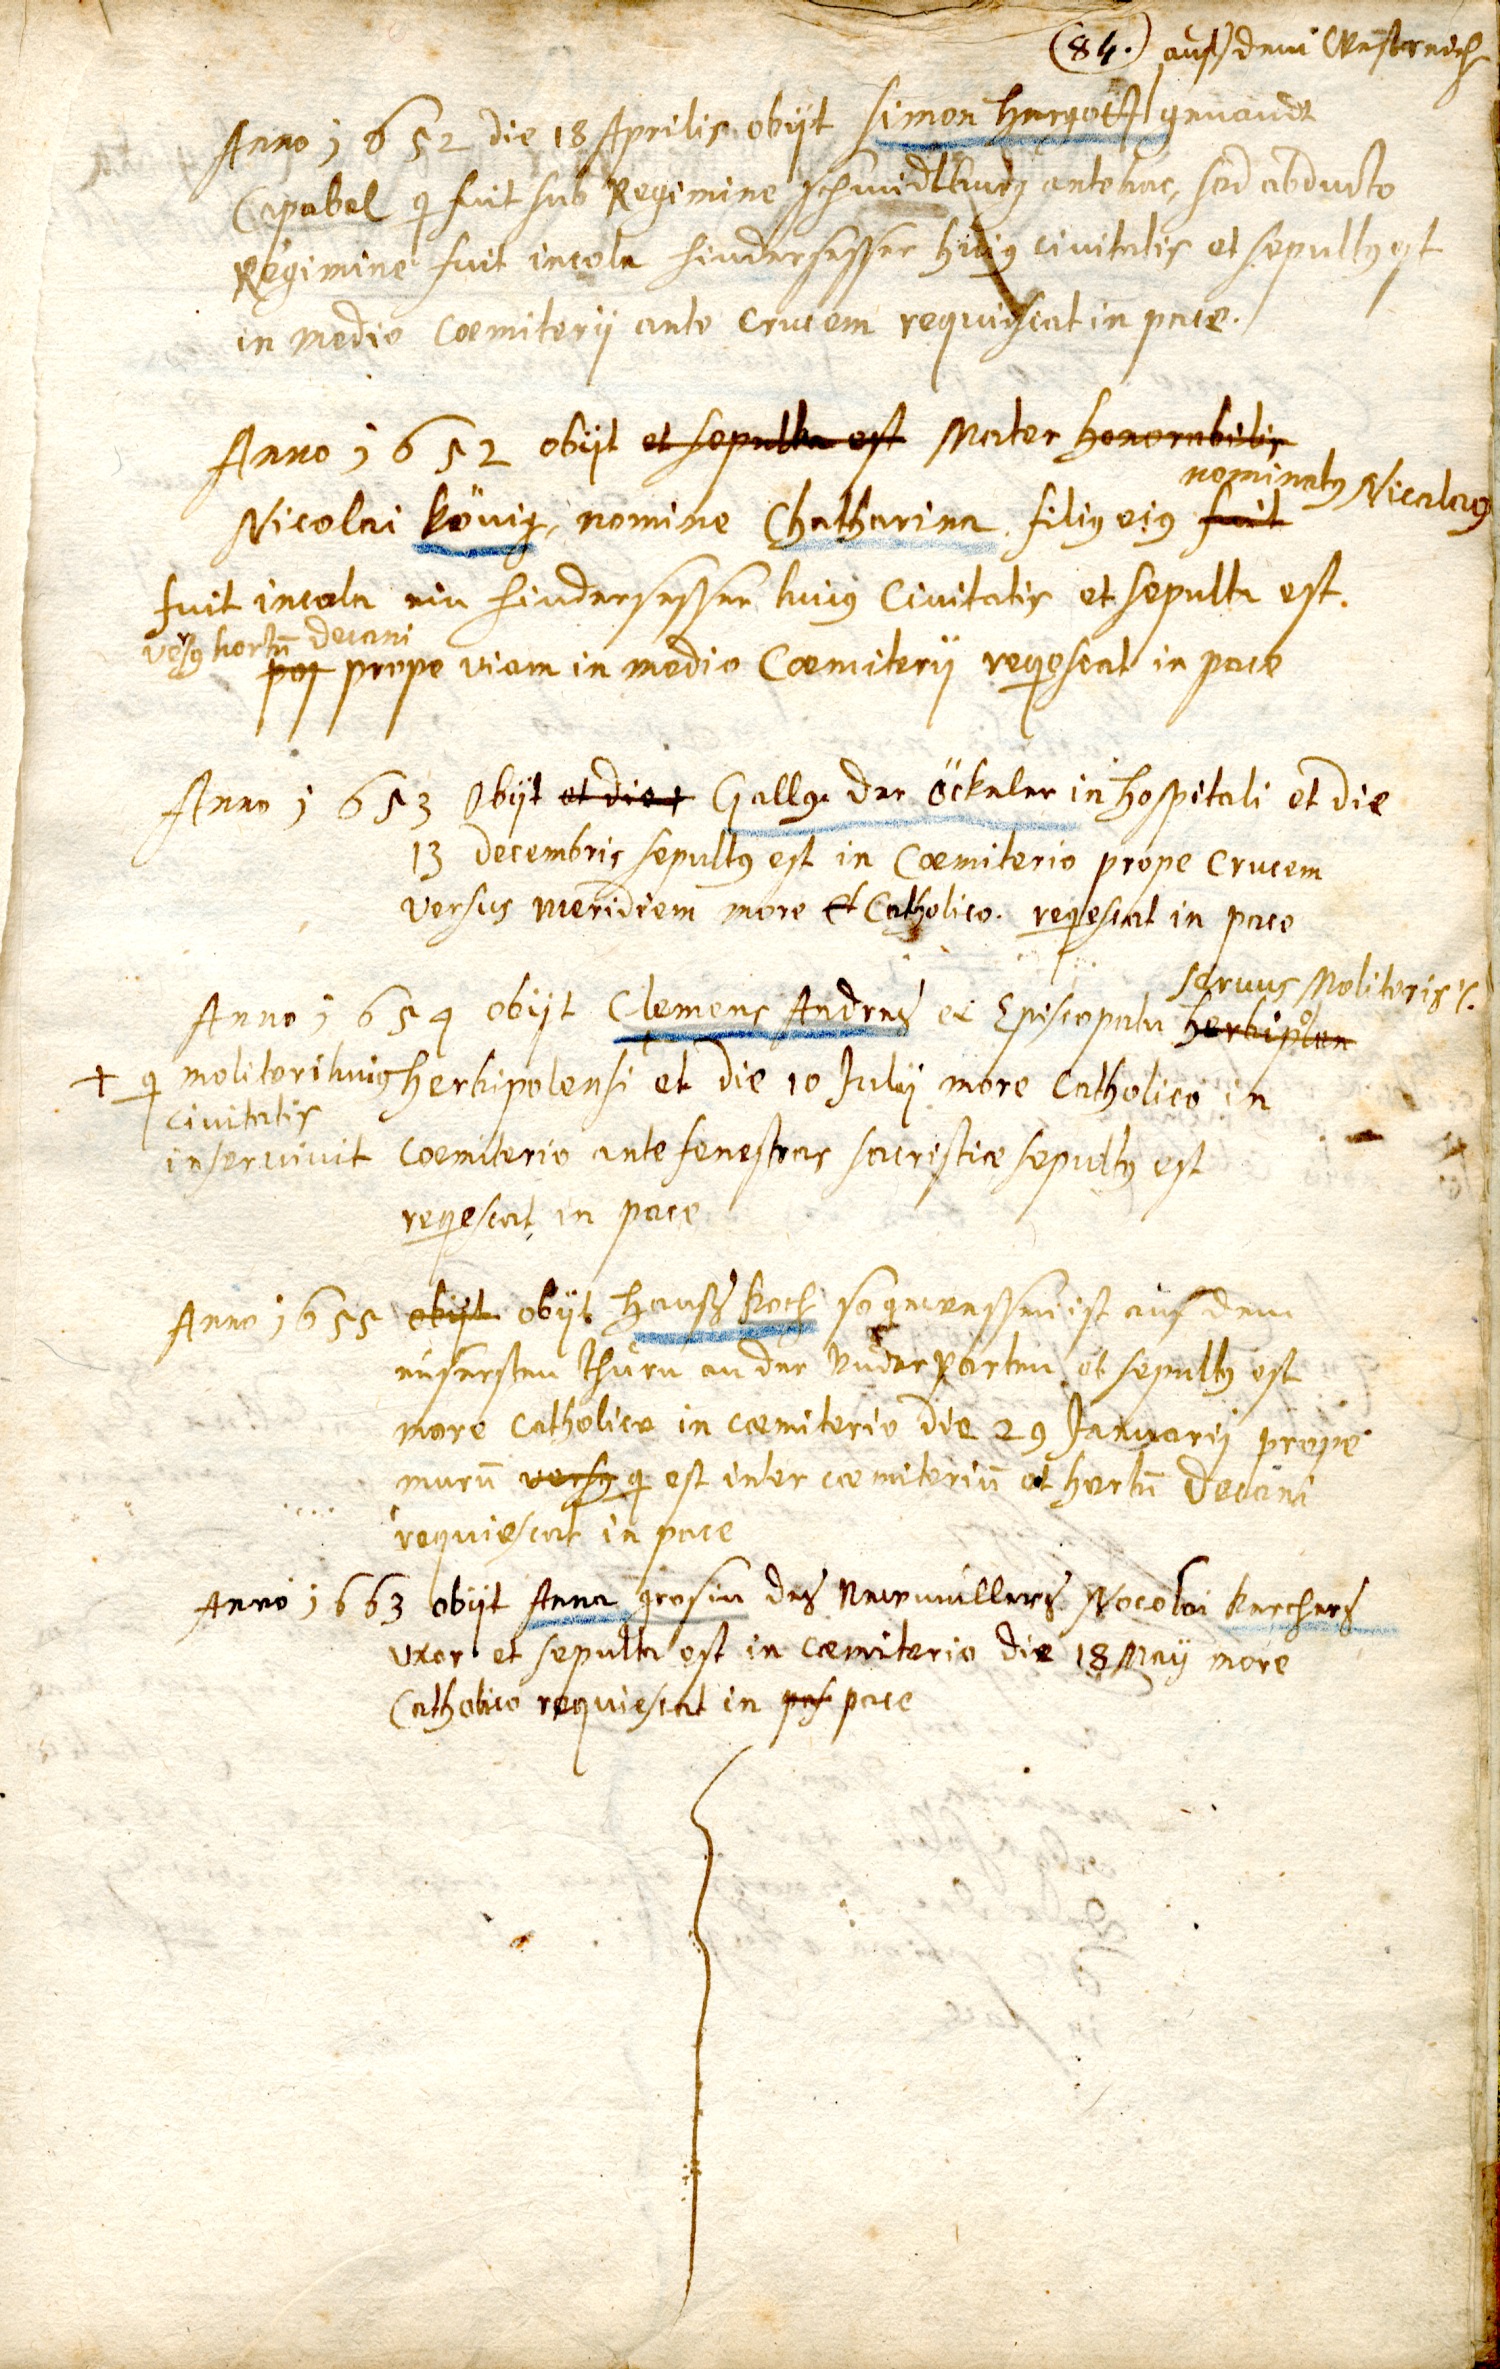 (84.) auß dem Westereich
Anno 1652 die 18 Aprilis obijt Simon Hergott genandt
Capabel q fuit sub Regimine schmidtburg antehac, sed abducto
Regimine fuit incola hindersesser huiꝰ civitatis et sepultꝰ est
in medio Coemiterij ante Crucem requiescat in pace.
Anno 1652 obijt et sepulta est Mater honorabilis
nominatꝰ Nicolaꝰ
Nicolai König, nomine Chatharina filiꝰ eiꝰ fuit
fuit incola ein hindersesser huiꝰ Civitatis et sepulta est.
versꝰ hortū decani
pos prope viam in medio Coemiterij reqescat in pace
Anno 1653 Obijt et die + Gallꝰ der öckeler in hospitali et die
13 decembris sepultꝰ est in Coemiterio prope Crucem
versus meridiem more et Catholico. reqescat in pace
servus Molitoris
Anno 1654 obijt Clemens Andres ex Episcopatu herbipolen
+ q molitori huiꝰ herbipolensi et die 10 Julij more Catholico in
civitatis
inservivit Coemiterio ante fenestras sacristiæ sepultꝰ est
reqescat in pace
Anno 1655 obijt obijt Hanß Koch so gewessen ist auf dem
eusersten thurn an der Under Porten et sepultꝰ est
more Catholico in cœmiterio die 29 Januarij prope
murū versꝰ q est inter cœmiteriū et hortū Decani
requiescat in pace
Anno 1663 obijt Anna grosin des Newmüllers Nocolai Karchers
uxor et sepulta est in cœmiterio die 18 Maij more
Catholico requiescat in pas pace